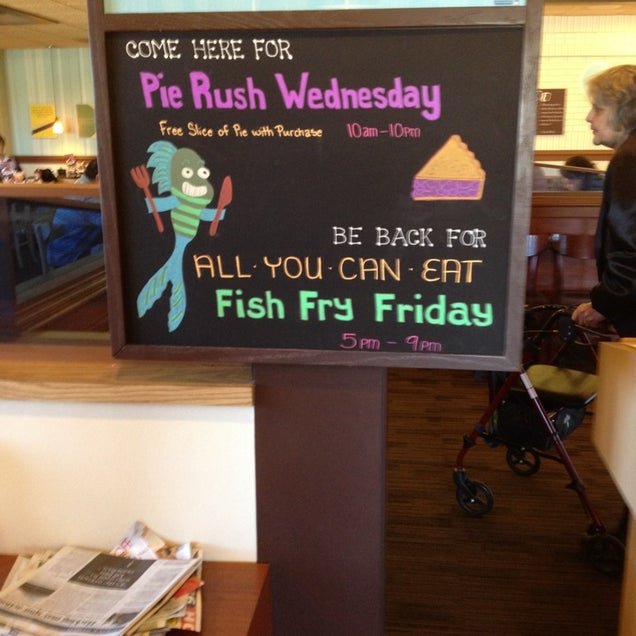 COME HERE FOR
Pie Rush Wednesday
Free Slice of Pie with Purchase 10am-10pm
BE BACK FOR
ALL·YOU·CAN·EAT
Fish Fry Friday
5pm - 9pm